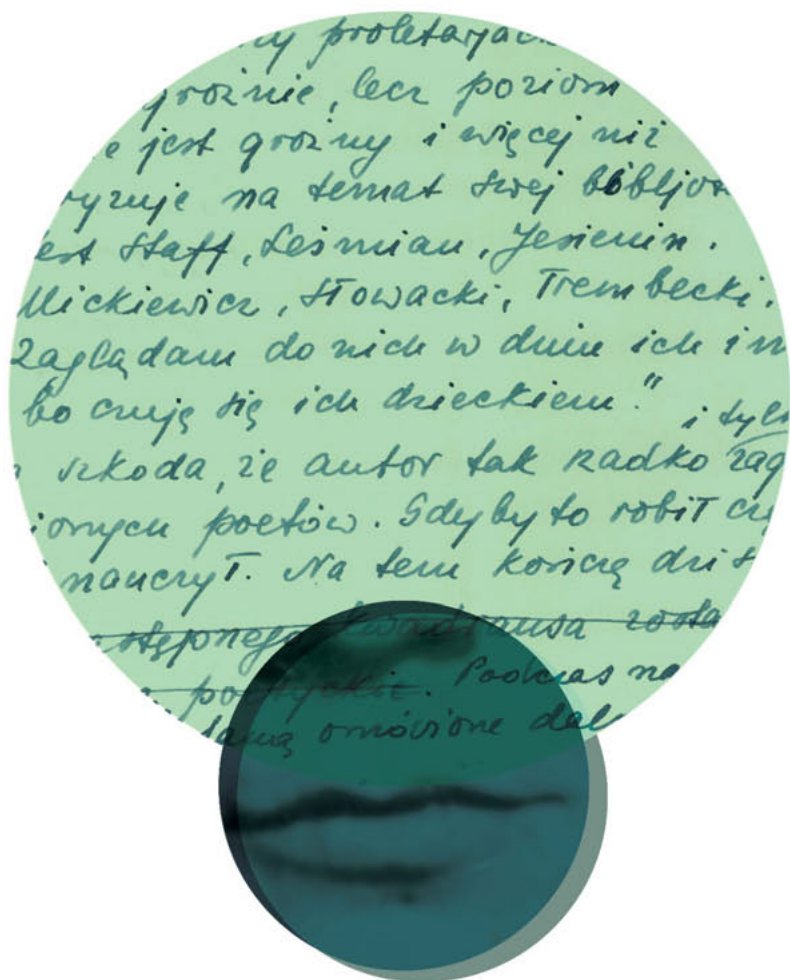 ny proletarjac
groźnie, lecz poziom
e jest groźny i więcej niż
ryzuje na temat swej bibljot
est Staff, Leśmian, Jesienin.
Mickiewicz, Słowacki, Trembecki.
Zaglądam do nich w dniu ich im
bo czuję się ich dzieckiem."
i tylk
szkoda, że autor tak rzadko zag
ionych poetów. Gdyby to robił czę
nauczył. Na tem kończę dzis
astępnego kwadransa zosta
poetyckie. Podczas na
staną omówione dal